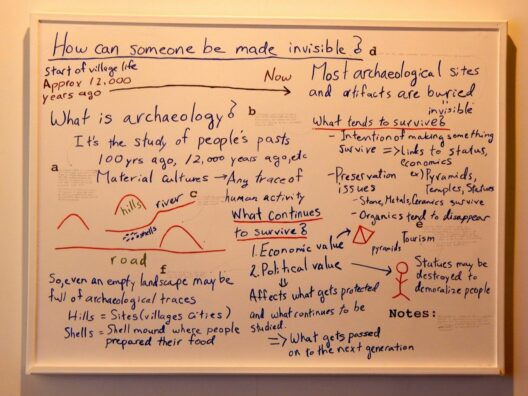 How can someone be made invisible?
d
Start of village life
Approx 12,000
years ago
Now
Most archaeological sites
and artifacts are buried
invisible
What is archaeology?
b
It's the study of people's pasts
100 yrs ago, 12,000 years ago, etc
a
Material cultures → Any trace of
human activity
hills
river
c
shells
road
f
So, even an empty landscape may be
full of archaeological traces
Hills = Sites (villages cities)
Shells = Shell mound where people
prepared their food
What continues
to survive?
1. Economic value
2. Political value
⇓
Affects what gets protected
and what continues to be
studied.
⇒ What gets passed
on to the next generation
What tends to survive?
- Intention of making something
survive ⇒ Links to status,
economics
- Preservation ex) Pyramids,
issues Temples, Statues
- Stone, Metals, Ceramics survive
- Organics tend to disappear
e
pyramids
Tourism
Statues may be
destroyed to
demoralize people
Notes: